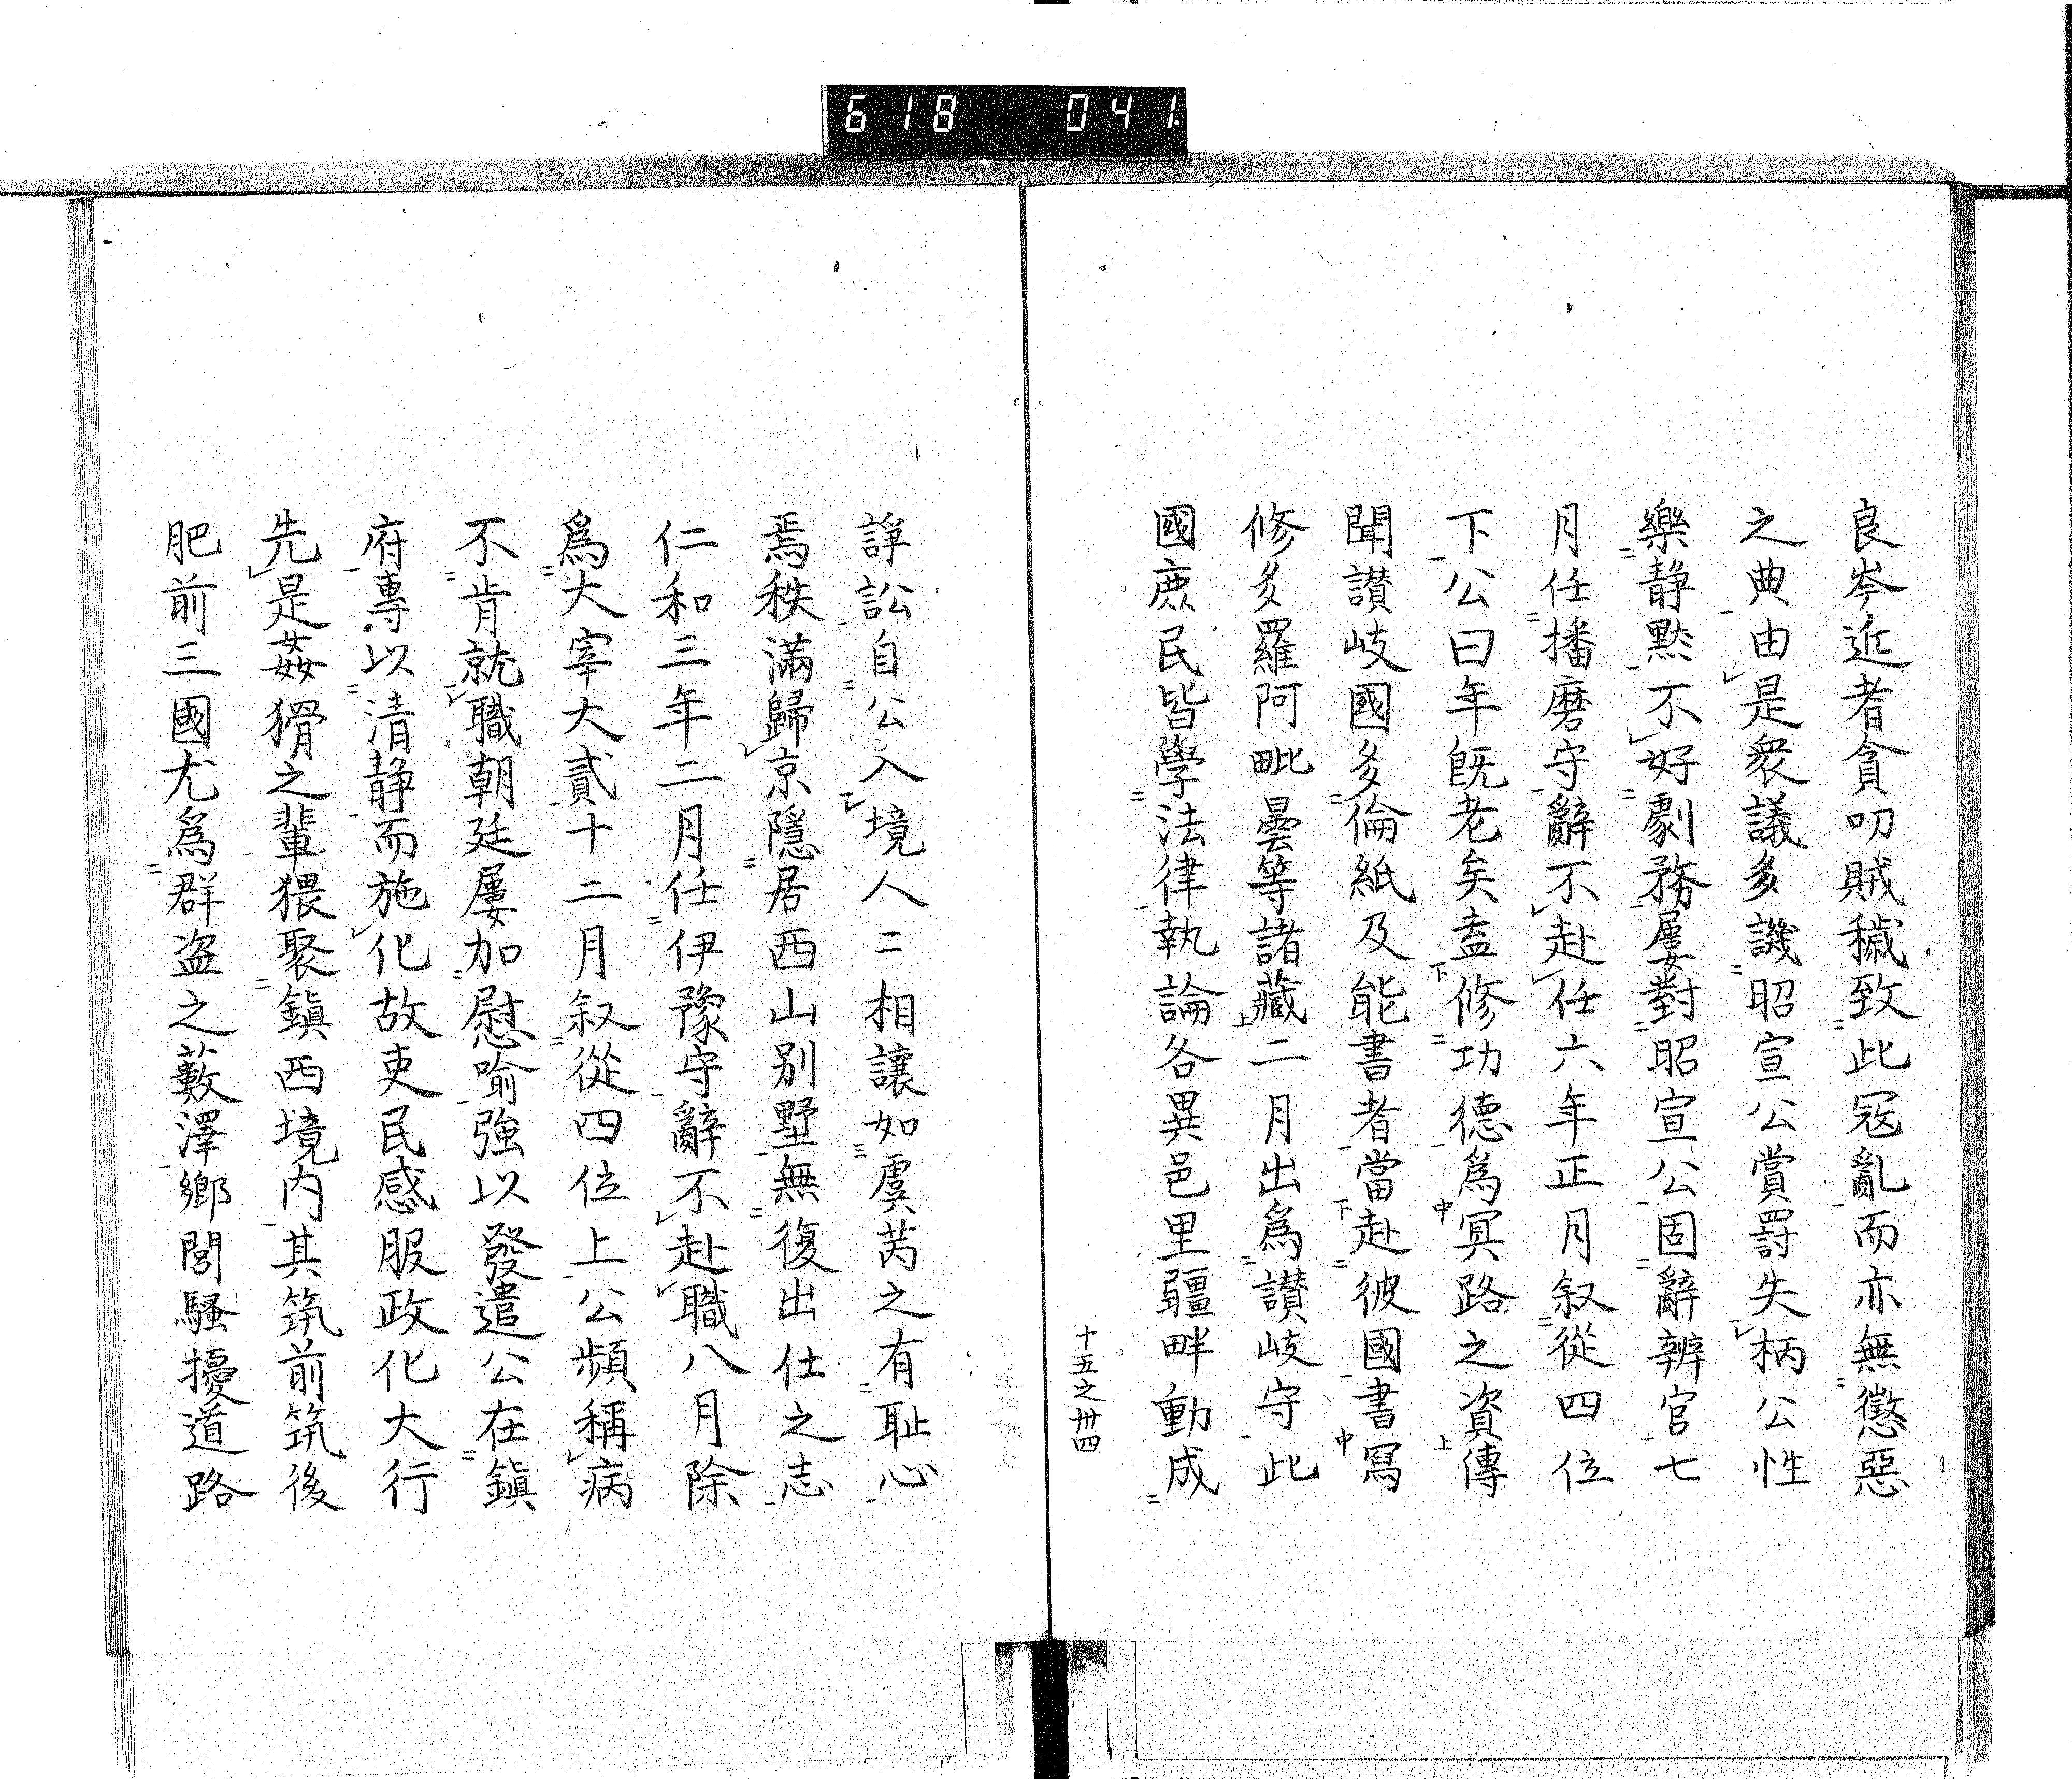 618 041
良岑近者貪叨賊穢致此冦亂而亦無懲惡
之典由是衆議多譏昭宣公賞罸失柄公性
樂静黙不好劇務屢對昭宣公固辭辨官七
月任播磨守辭不赴任六年正月叙從四位
下公曰年既老矣盍修功德爲冥路之資傳
聞讃岐國多倫紙及能書者當赴彼國書寫
修多羅阿毗曇等諸藏二月出爲讃岐守此
國庶民皆學法律執論各異邑里疆畔動成
十五之卅四
諍訟自公入境人二相讓如虞芮之有耻心
焉秩滿歸京隱居西山别墅無復出仕之志
仁和三年二月任伊豫守辭不赴職八月除
爲大宰大貳十二月叙從四位上公頻稱病
不肯就職朝廷屢加慰喻強以發遣公在鎭
府專以清静而施化故吏民感服政化大行
先是姦猾之輩猥聚鎭西境内其筑前筑後
肥前三國尤爲群盗之藪澤鄉閭騷擾道路